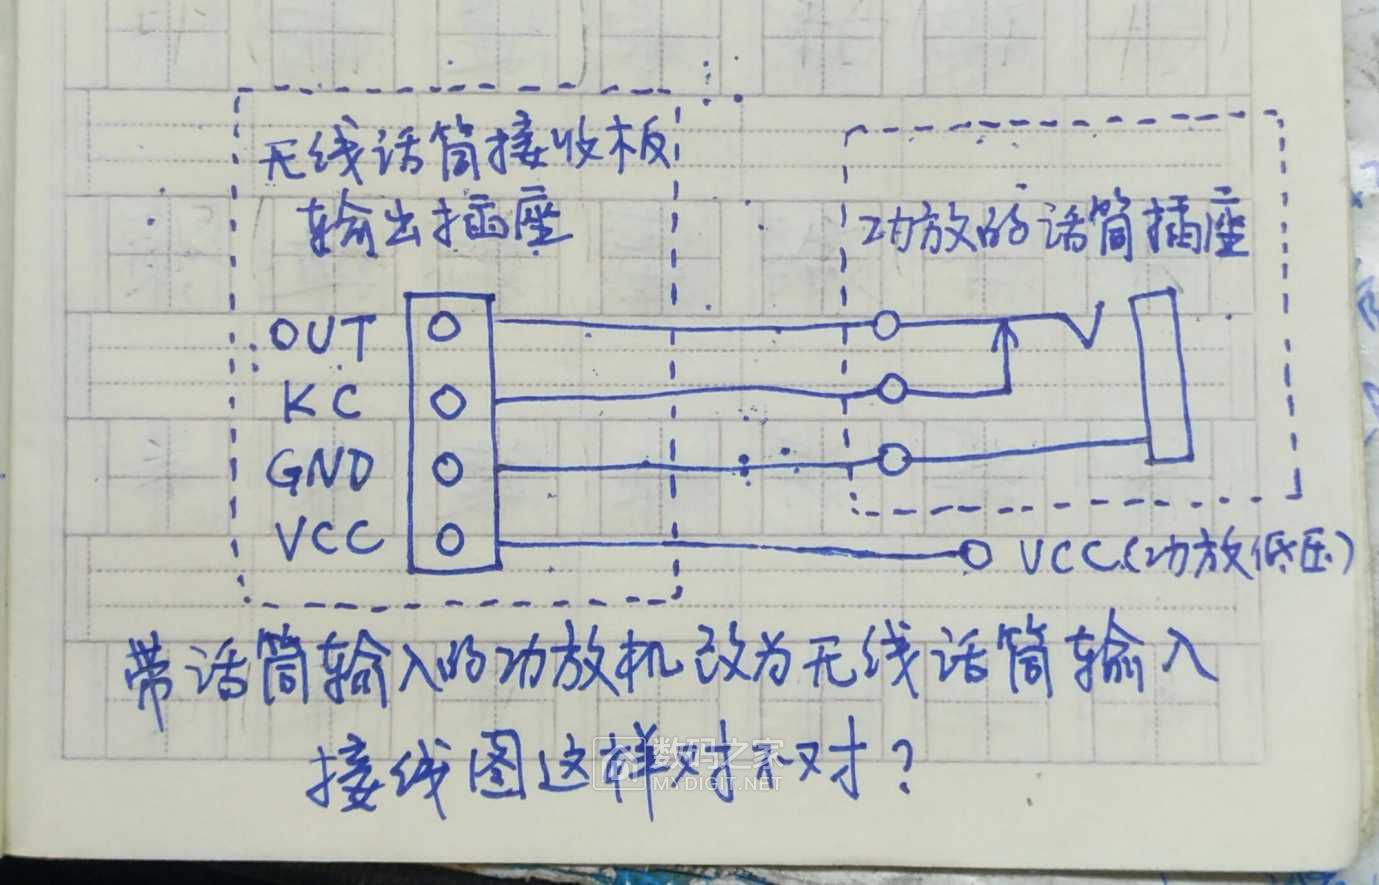 无线话筒接收板
输出插座
功放的话筒插座
OUT
KC
GND
VCC
VCC(功放低压)
带话筒输入的功放机改为无线话筒输入
接线图这样对不对?
数码之家
MYDIGIT.NET